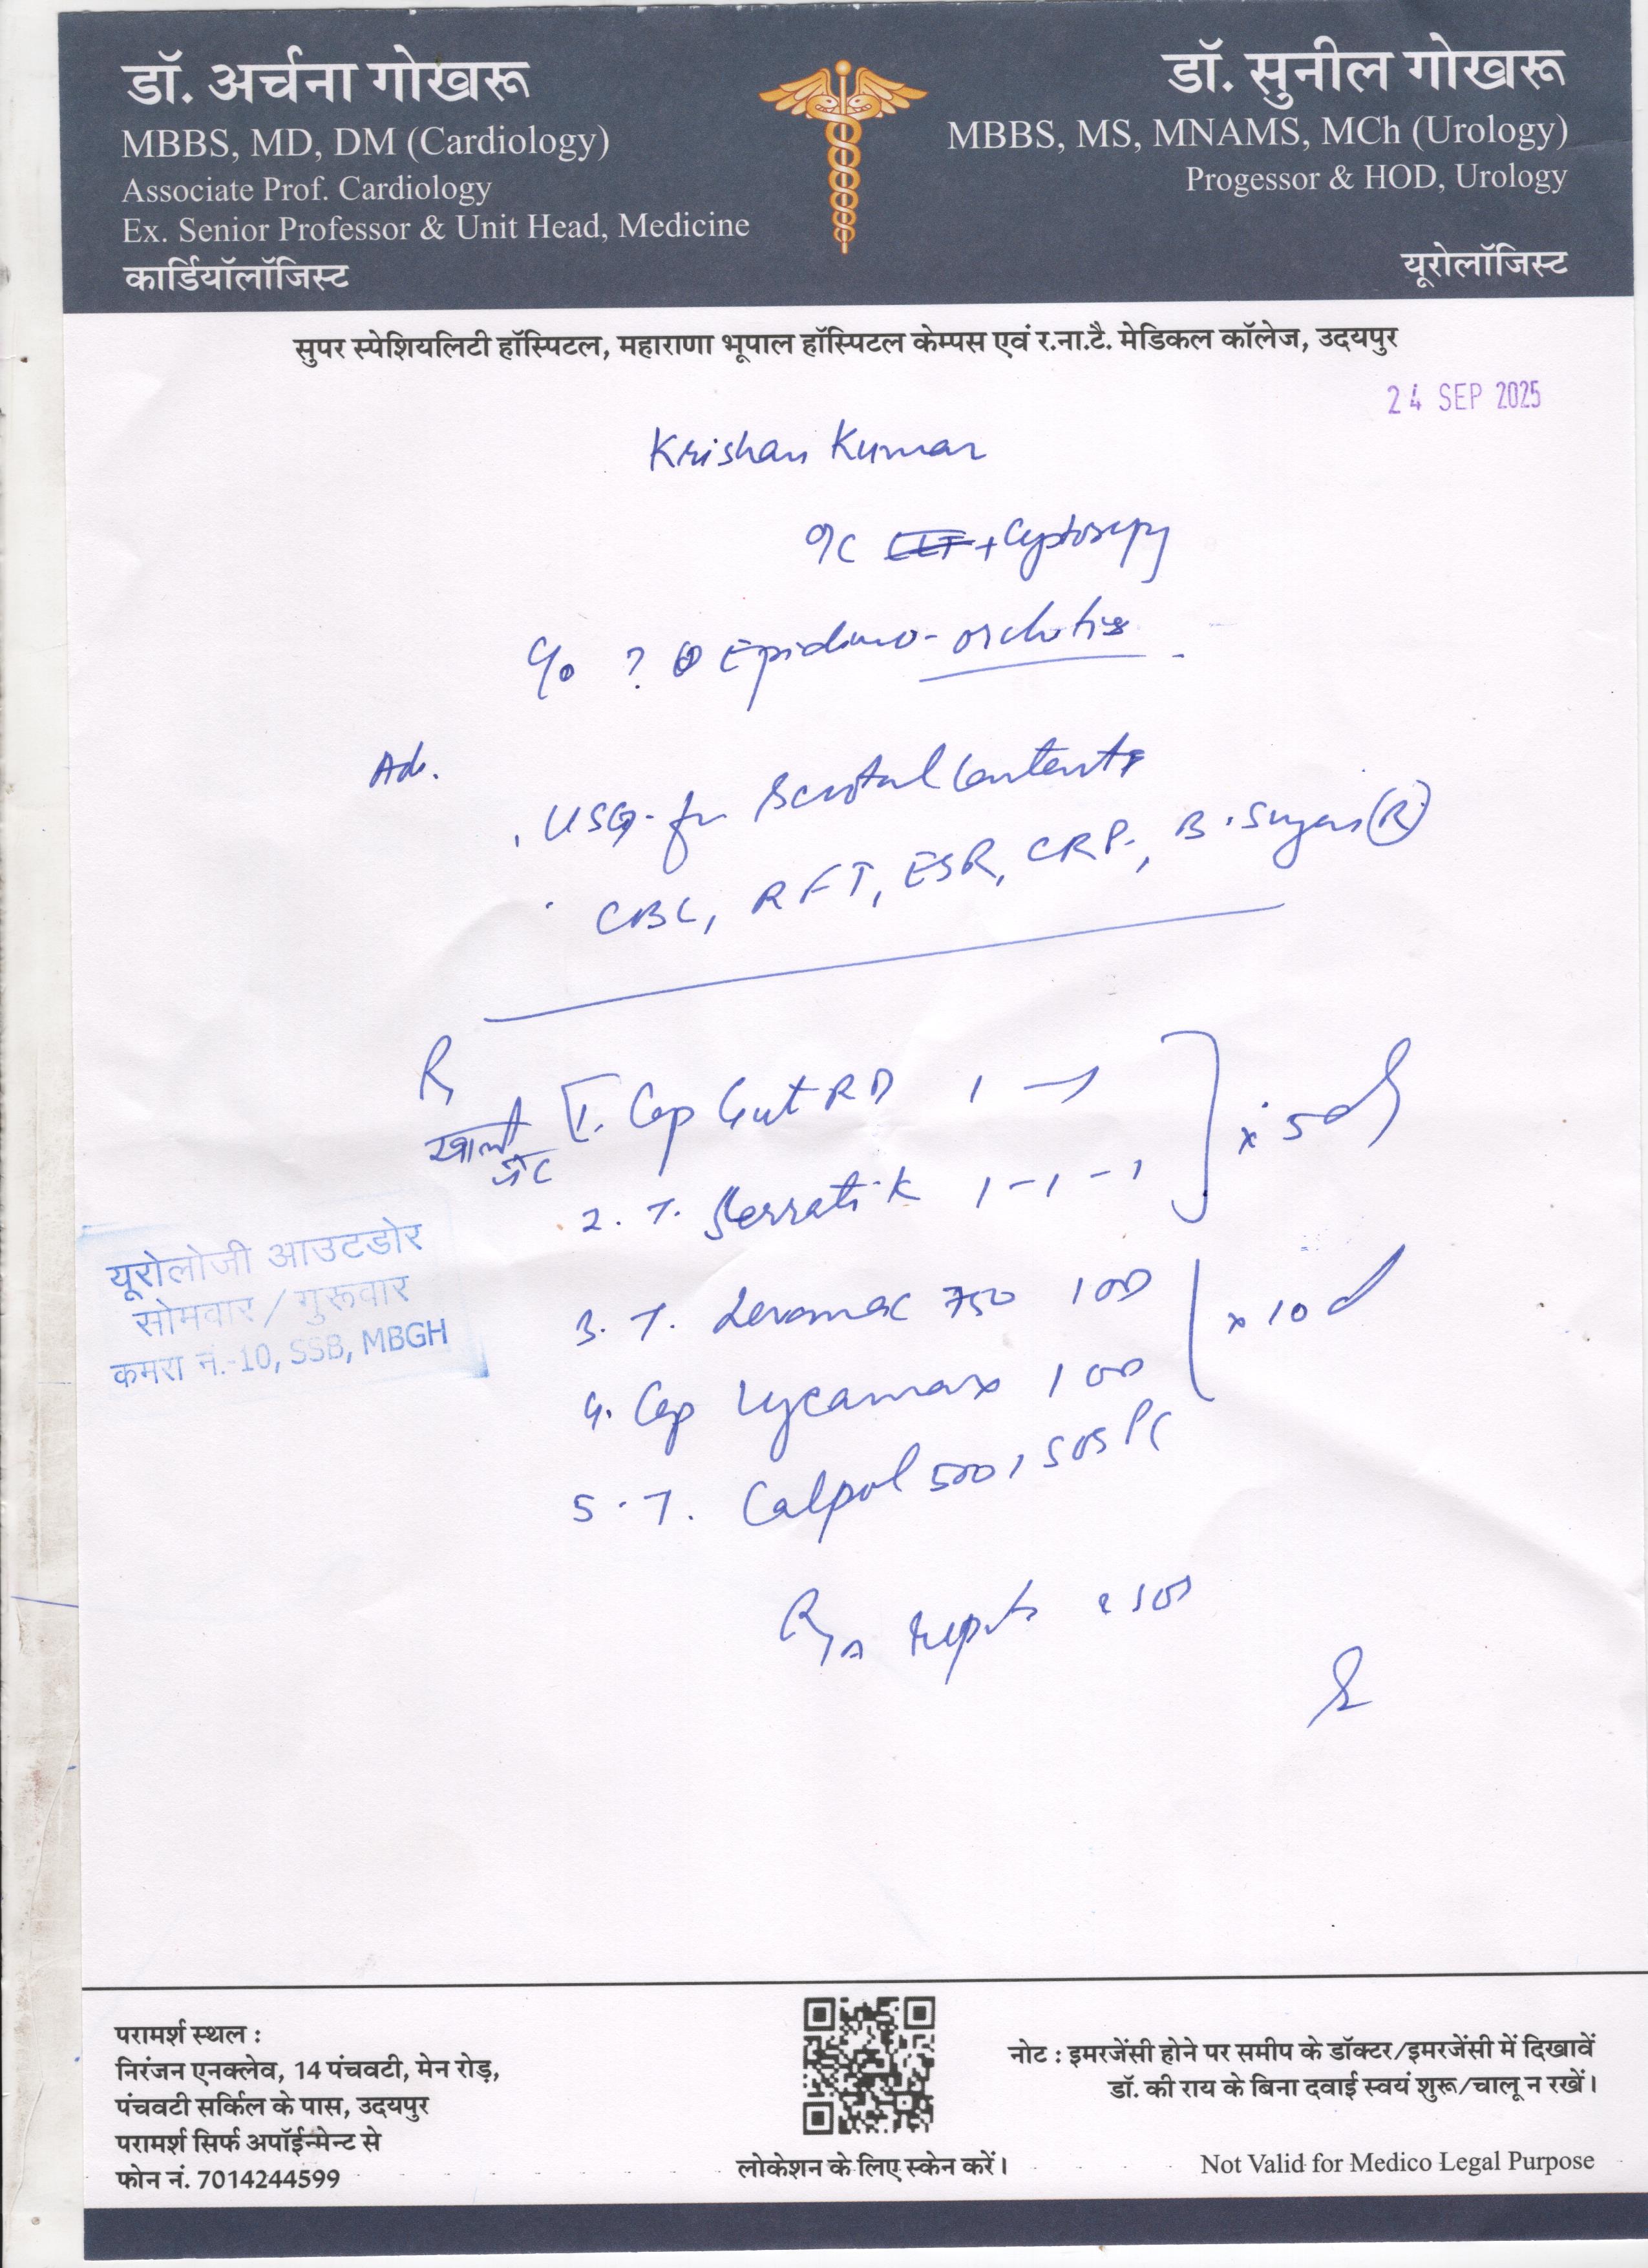 डॉ. अर्चना गोखरू
MBBS, MD, DM (Cardiology)
Associate Prof. Cardiology
Ex. Senior Professor & Unit Head, Medicine
कार्डियॉलॉजिस्ट
डॉ. सुनील गोखरू
MBBS, MS, MNAMS, MCh (Urology)
Progessor & HOD, Urology
यूरोलॉजिस्ट
सुपर स्पेशियलिटी हॉस्पिटल, महाराणा भूपाल हॉस्पिटल केम्पस एवं र.ना.टै. मेडिकल कॉलेज, उदयपुर
24 SEP 2025
Krishan Kumar
? Epidimo-orchitis
Adv.
USG for Scrotal Contents
CBC, RFT, ESR, CRP, B. Sugar (R)
Rx
खाली पेट
1. Cap Gut RD 1 × 5d
2. T. Serratik 1-1-1
3. T. Levomac 750 1 OD × 10d
4. Cap Lycamax 1 OD
5. T. Calpol 500, SOS PC
यूरोलोजी आउटडोर
सोमवार / गुरूवार
कमरा नं.-10, SSB, MBGH
reports
परामर्श स्थल :
निरंजन एनक्लेव, 14 पंचवटी, मेन रोड़,
पंचवटी सर्किल के पास, उदयपुर
परामर्श सिर्फ अपॉईन्मेन्ट से
फोन नं. 7014244599
लोकेशन के लिए स्केन करें।
नोट : इमरजेंसी होने पर समीप के डॉक्टर/इमरजेंसी में दिखावें
डॉ. की राय के बिना दवाई स्वयं शुरू/चालू न रखें।
Not Valid for Medico Legal Purpose